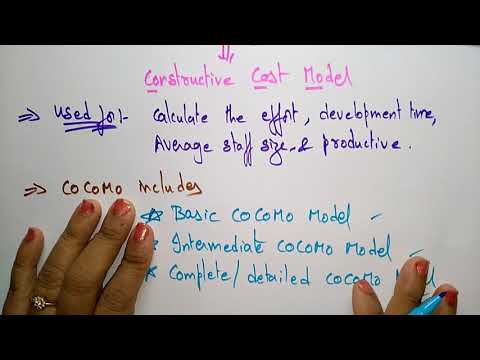 ⇓
Constructive Cost Model
⇒ Used for:- Calculate the effort, development time,
Average staff size & productive.
⇒ COCOMO includes
☆ Basic COCOMO Model -
* Intermediate COCOMO Model -
* Complete/detailed COCOMO